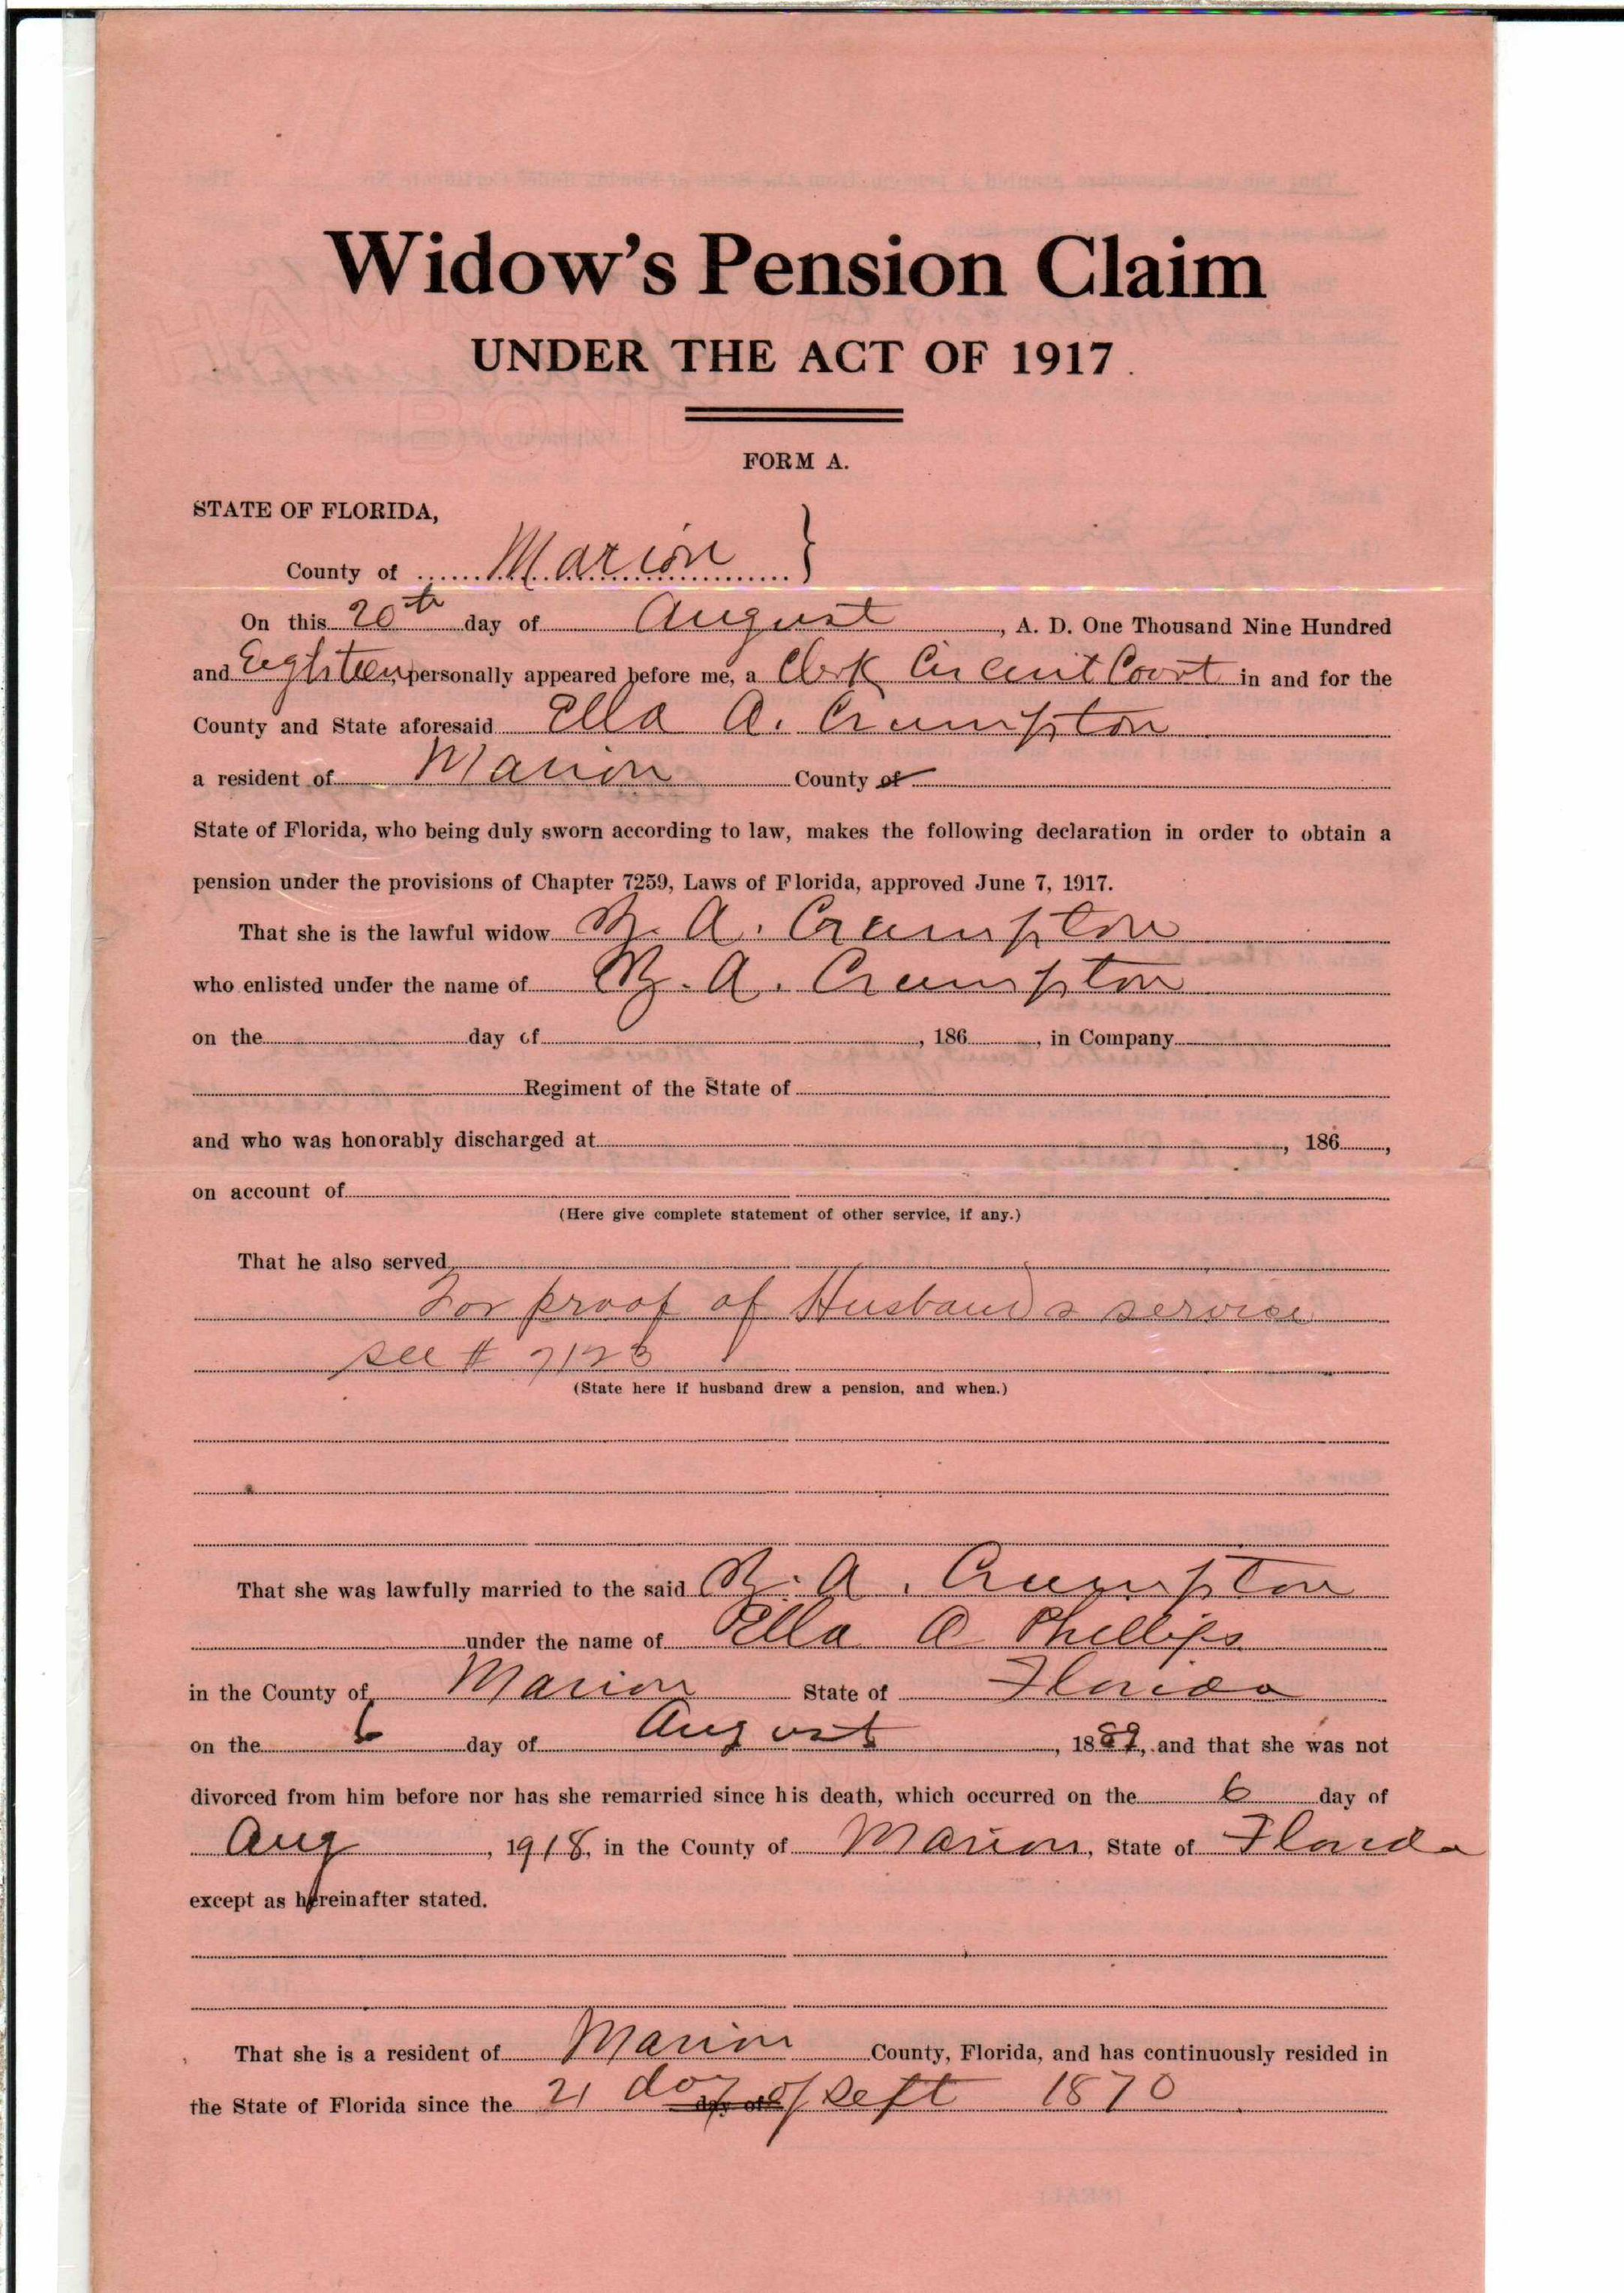 Widow's Pension Claim
UNDER THE ACT OF 1917.
FORM A.
STATE OF FLORIDA,
County of Marion }
On this 20th day of August, A. D. One Thousand Nine Hundred
and Eighteen, personally appeared before me, a Clerk Circuit Court in and for the
County and State aforesaid Ella A. Crumpton
a resident of Marion County of
State of Florida, who being duly sworn according to law, makes the following declaration in order to obtain a
pension under the provisions of Chapter 7259, Laws of Florida, approved June 7, 1917.
That she is the lawful widow A. Crumpton
who enlisted under the name of A. Crumpton
on the day of , 186 , in Company
Regiment of the State of
and who was honorably discharged at , 186 ,
on account of
(Here give complete statement of other service, if any.)
That he also served
For proof of Husband's service
see # 7123
(State here if husband drew a pension, and when.)
That she was lawfully married to the said A. Crumpton
under the name of Ella A Phillips
in the County of Marion State of Florida
on the 6 day of August, 1889, and that she was not
divorced from him before nor has she remarried since his death, which occurred on the 6 day of
Aug, 1918, in the County of Marion, State of Florida
except as hereinafter stated.
That she is a resident of Marion County, Florida, and has continuously resided in
the State of Florida since the 21 day of Sept 1870